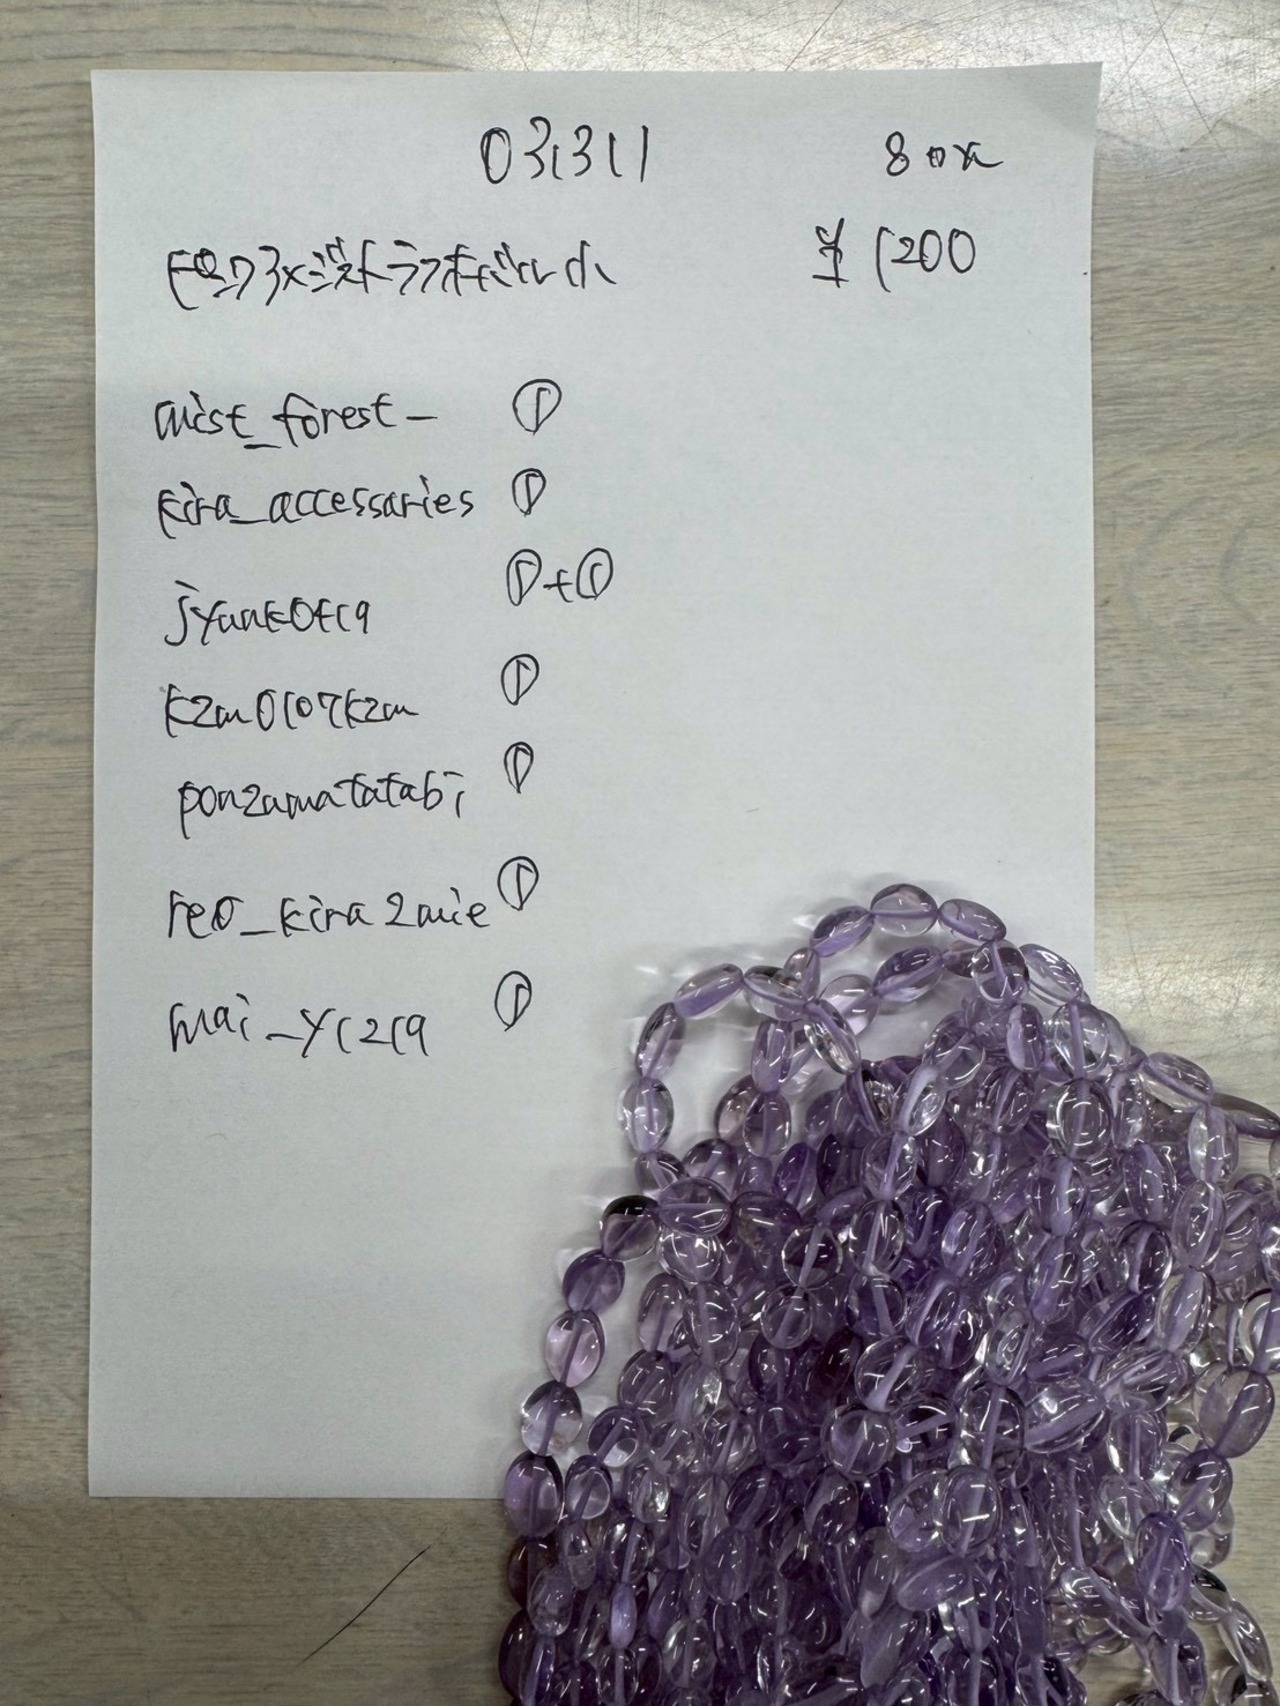 031311 80x
ピンクアメジストラフオーバル小 ¥1200
mist_forest_ ①
kira_accessaries ①
jyankoti9 ①+①
kzm0107kzm ①
ponzamatatabi ①
reo_kira2mie ①
mai_y1219 ①